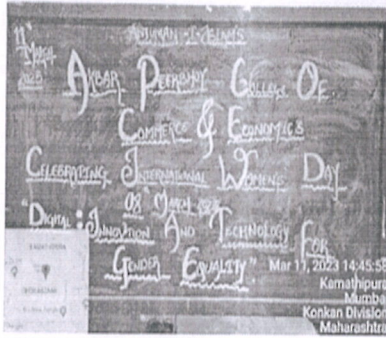 ANJUMAN-I-ISLAM'S
11
March
AKBAR PEERBHOY COLLEGE OF
COMMERCE & ECONOMICS
CELEBRATING INTERNATIONAL WOMEN'S DAY
08 MARCH
"DIGITAL: INNOVATION AND TECHNOLOGY FOR
GENDER EQUALITY"
Mar 11, 2023 14:45:5
Kamathipura
Mumba
Konkan Division
Maharashtra